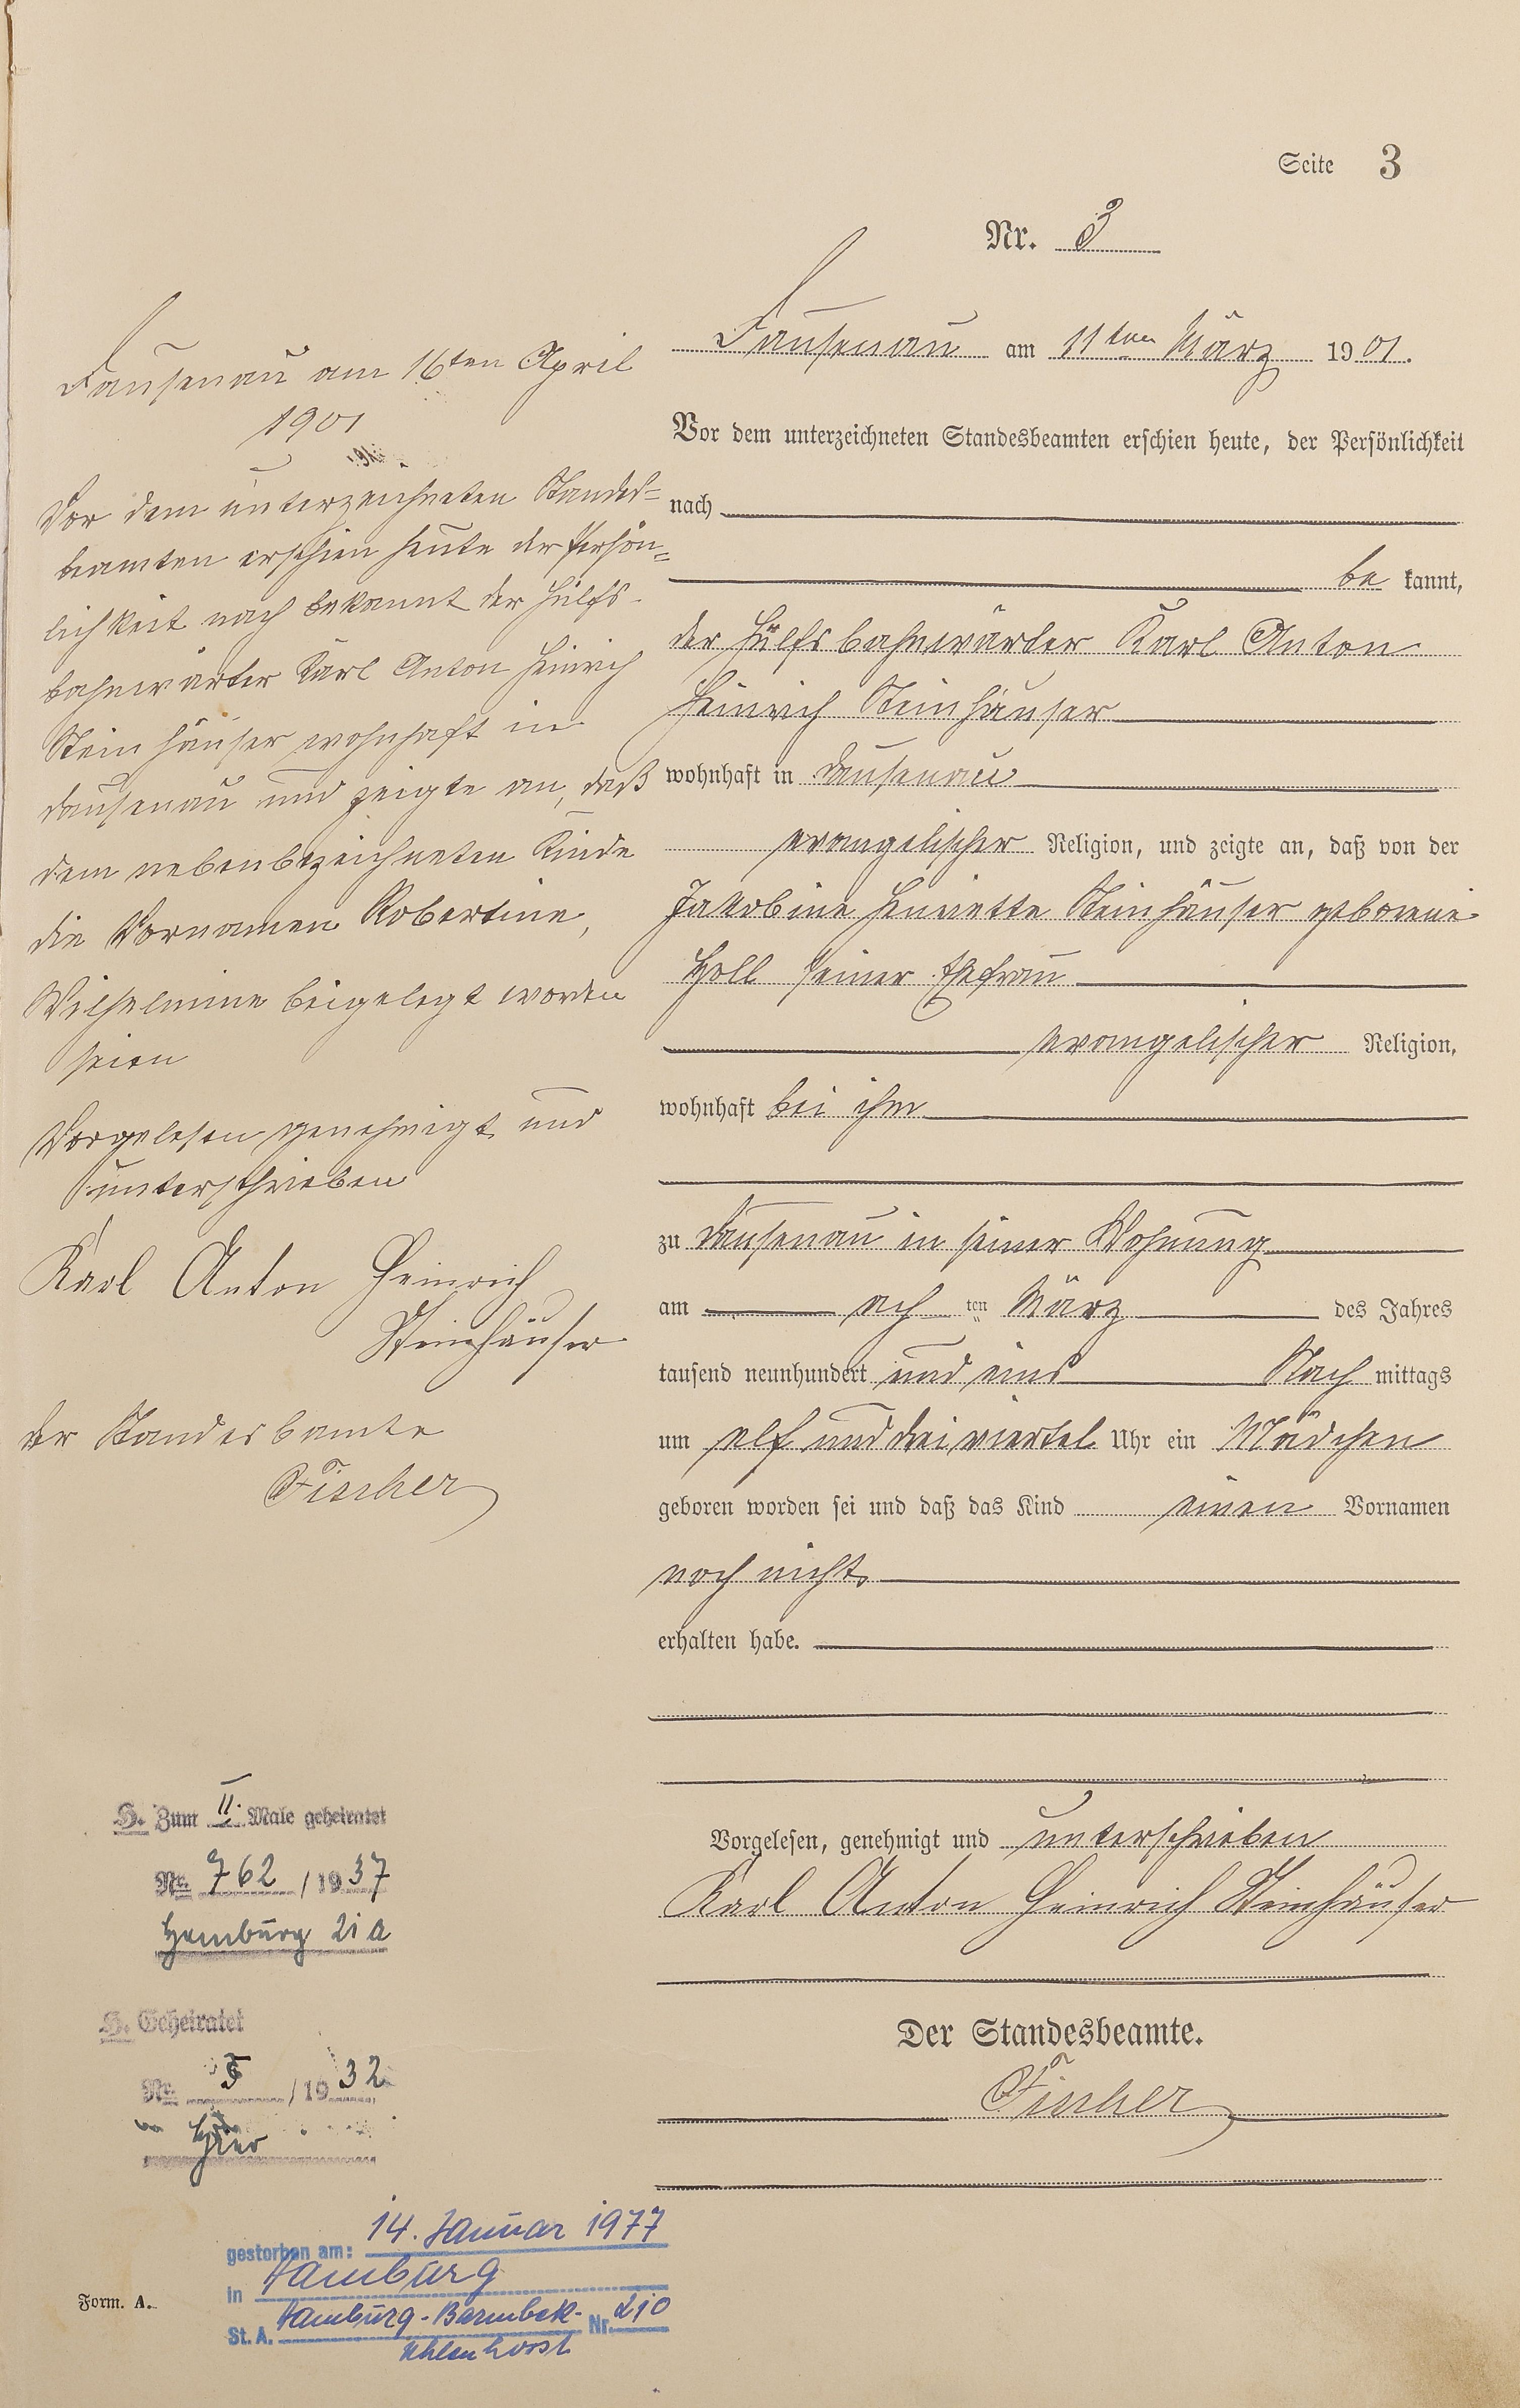 Seite 3
Nr. 3
Dausenau am 11ten März 1901.
Vor dem unterzeichneten Standesbeamten erschien heute, der Persönlichkeit
nach
be kannt,
der Hülfsbahnwärter Karl Anton
Heinrich Steinhäuser
wohnhaft in Dausenau
evangelischer Religion, und zeigte an, daß von der
Jakobine Henriette Steinhäuser geborene
Holl seiner Ehefrau
evangelischer Religion,
wohnhaft bei ihm
zu Dausenau in seiner Wohnung
am ach ten März des Jahres
tausend neunhundert und eins Nach mittags
um elf und drei viertel Uhr ein Mädchen
geboren worden sei und daß das Kind einen Vornamen
noch nicht
erhalten habe.
Vorgelesen, genehmigt und unterschrieben
Karl Anton Heinrich Steinhäuser
Der Standesbeamte.
Fischer
Dausenau am 16ten April
1901
Vor dem unterzeichneten Standes=
beamten erschien heute der Persön=
lichkeit nach bekannt der Hülfs-
bahnwärter Karl Anton Heinrich
Steinhäuser wohnhaft in
Dausenau und zeigte an, daß
dem nebenbezeichneten Kinde
die Vornamen Robertine,
Wilhelmine beigelegt worden
seien
Vorgelesen genehmigt und
unterschrieben
Karl Anton Heinrich
Steinhäuser
der Standesbamte
Fischer
H. Zum II. Male geheiratet
Nr. 762 / 1937
Hamburg 21a
H. Geheiratet
Nr. 5 / 1932
hier
gestorben am: 14. Januar 1977
in Hamburg
St. A. Hamburg-Barmbek- Nr. 210
Uhlenhorst
Form. A.